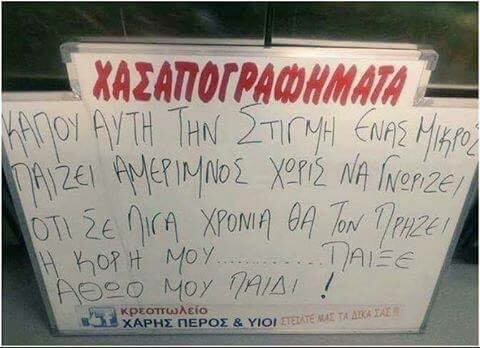 ΧΑΣΑΠΟΓΡΑΦΗΜΑΤΑ
ΚΑΠΟΥ ΑΥΤΗ ΤΗΝ ΣΤΙΓΜΗ ΕΝΑΣ ΜΙΚΡΟΣ
ΠΑΙΖΕΙ ΑΜΕΡΙΜΝΟΣ ΧΩΡΙΣ ΝΑ ΓΝΩΡΙΖΕΙ
ΟΤΙ ΣΕ ΛΙΓΑ ΧΡΟΝΙΑ ΘΑ ΤΟΝ ΠΡΗΖΕΙ
Η ΚΟΡΗ ΜΟΥ............ ΠΑΙΞΕ
ΑΘΩΟ ΜΟΥ ΠΑΙΔΙ !
κρεοπωλείο
ΧΑΡΗΣ ΠΕΡΟΣ & ΥΙΟΙ ΣΤΕΙΛΤΕ ΜΑΣ ΤΑ ΔΙΚΑ ΣΑΣ !!!